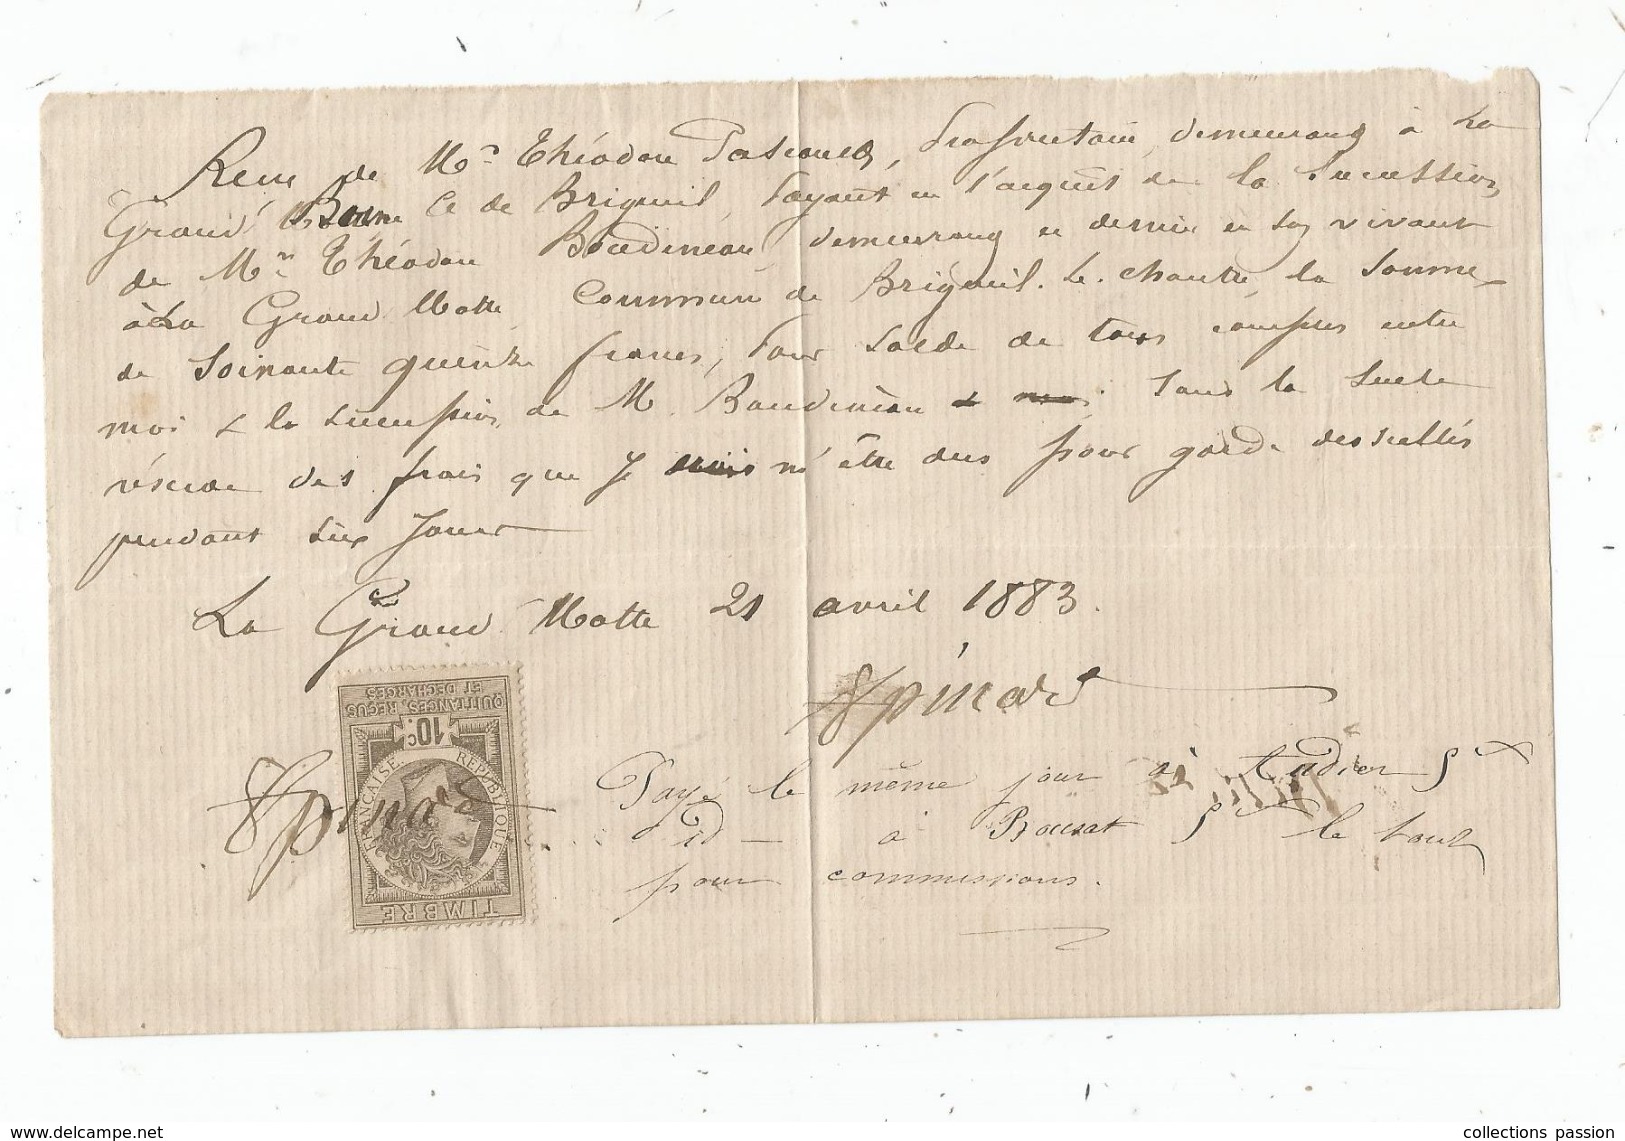 Reçu de Mr Théodore Pascaud, propriétaire, demeurant à La
Grand' Borne Cne de Brigueil, payant en l'acquit de la succession
de Mr Théodore Baudineau, demeurant en dernier en son vivant
à La Grand Motte Commune de Brigueil. Le. chantre, la somme
de soixante quinze francs, pour solde de tous comptes entre
moi & la succession de M. Baudineau sans la suele
réserve des frais que Je m'être dus pour garde des scellés
pendant six jours
La Grand Motte 21 avril 1883.
Spinard
QUITTANCES, REÇUS
ET DÉCHARGES
10c
RÉPUBLIQUE FRANÇAISE
TIMBRE
Spinard
Payé le même jour à Tudier 5 f
id — à Rousat 5 f le tout
pour commissions.
collections passion
www.delcampe.net